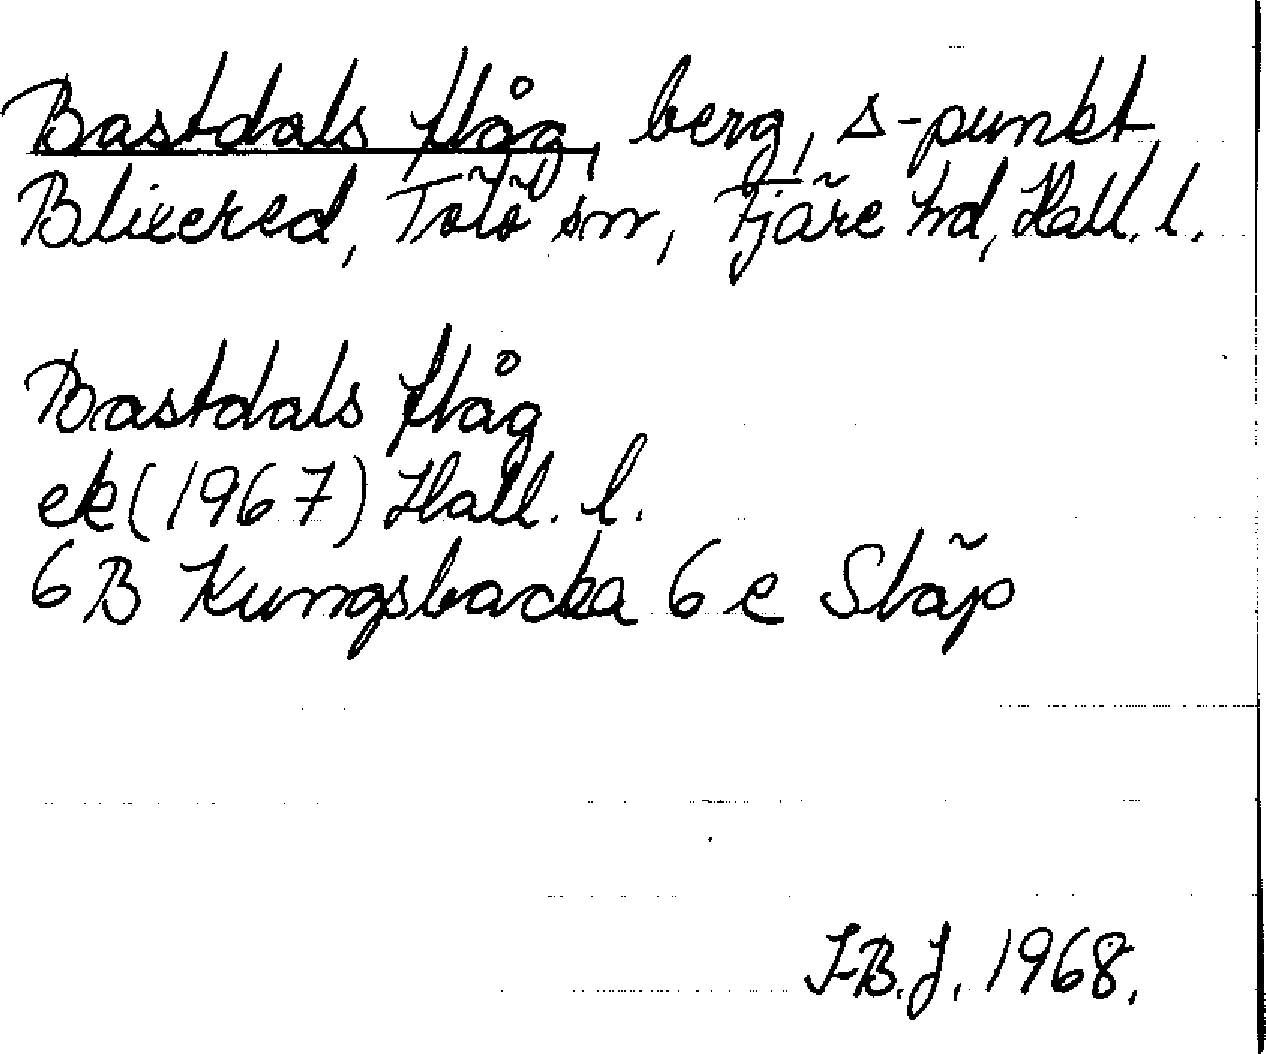 Bastdals flåg, berg, Δ-punkt
Blixered, Tölö sn, Fjäre hd, Hall. l.
Bastdals flåg
ek (1967) Hall. l.
6B Kungsbacka 6 e Släp
I-B.J. 1968.